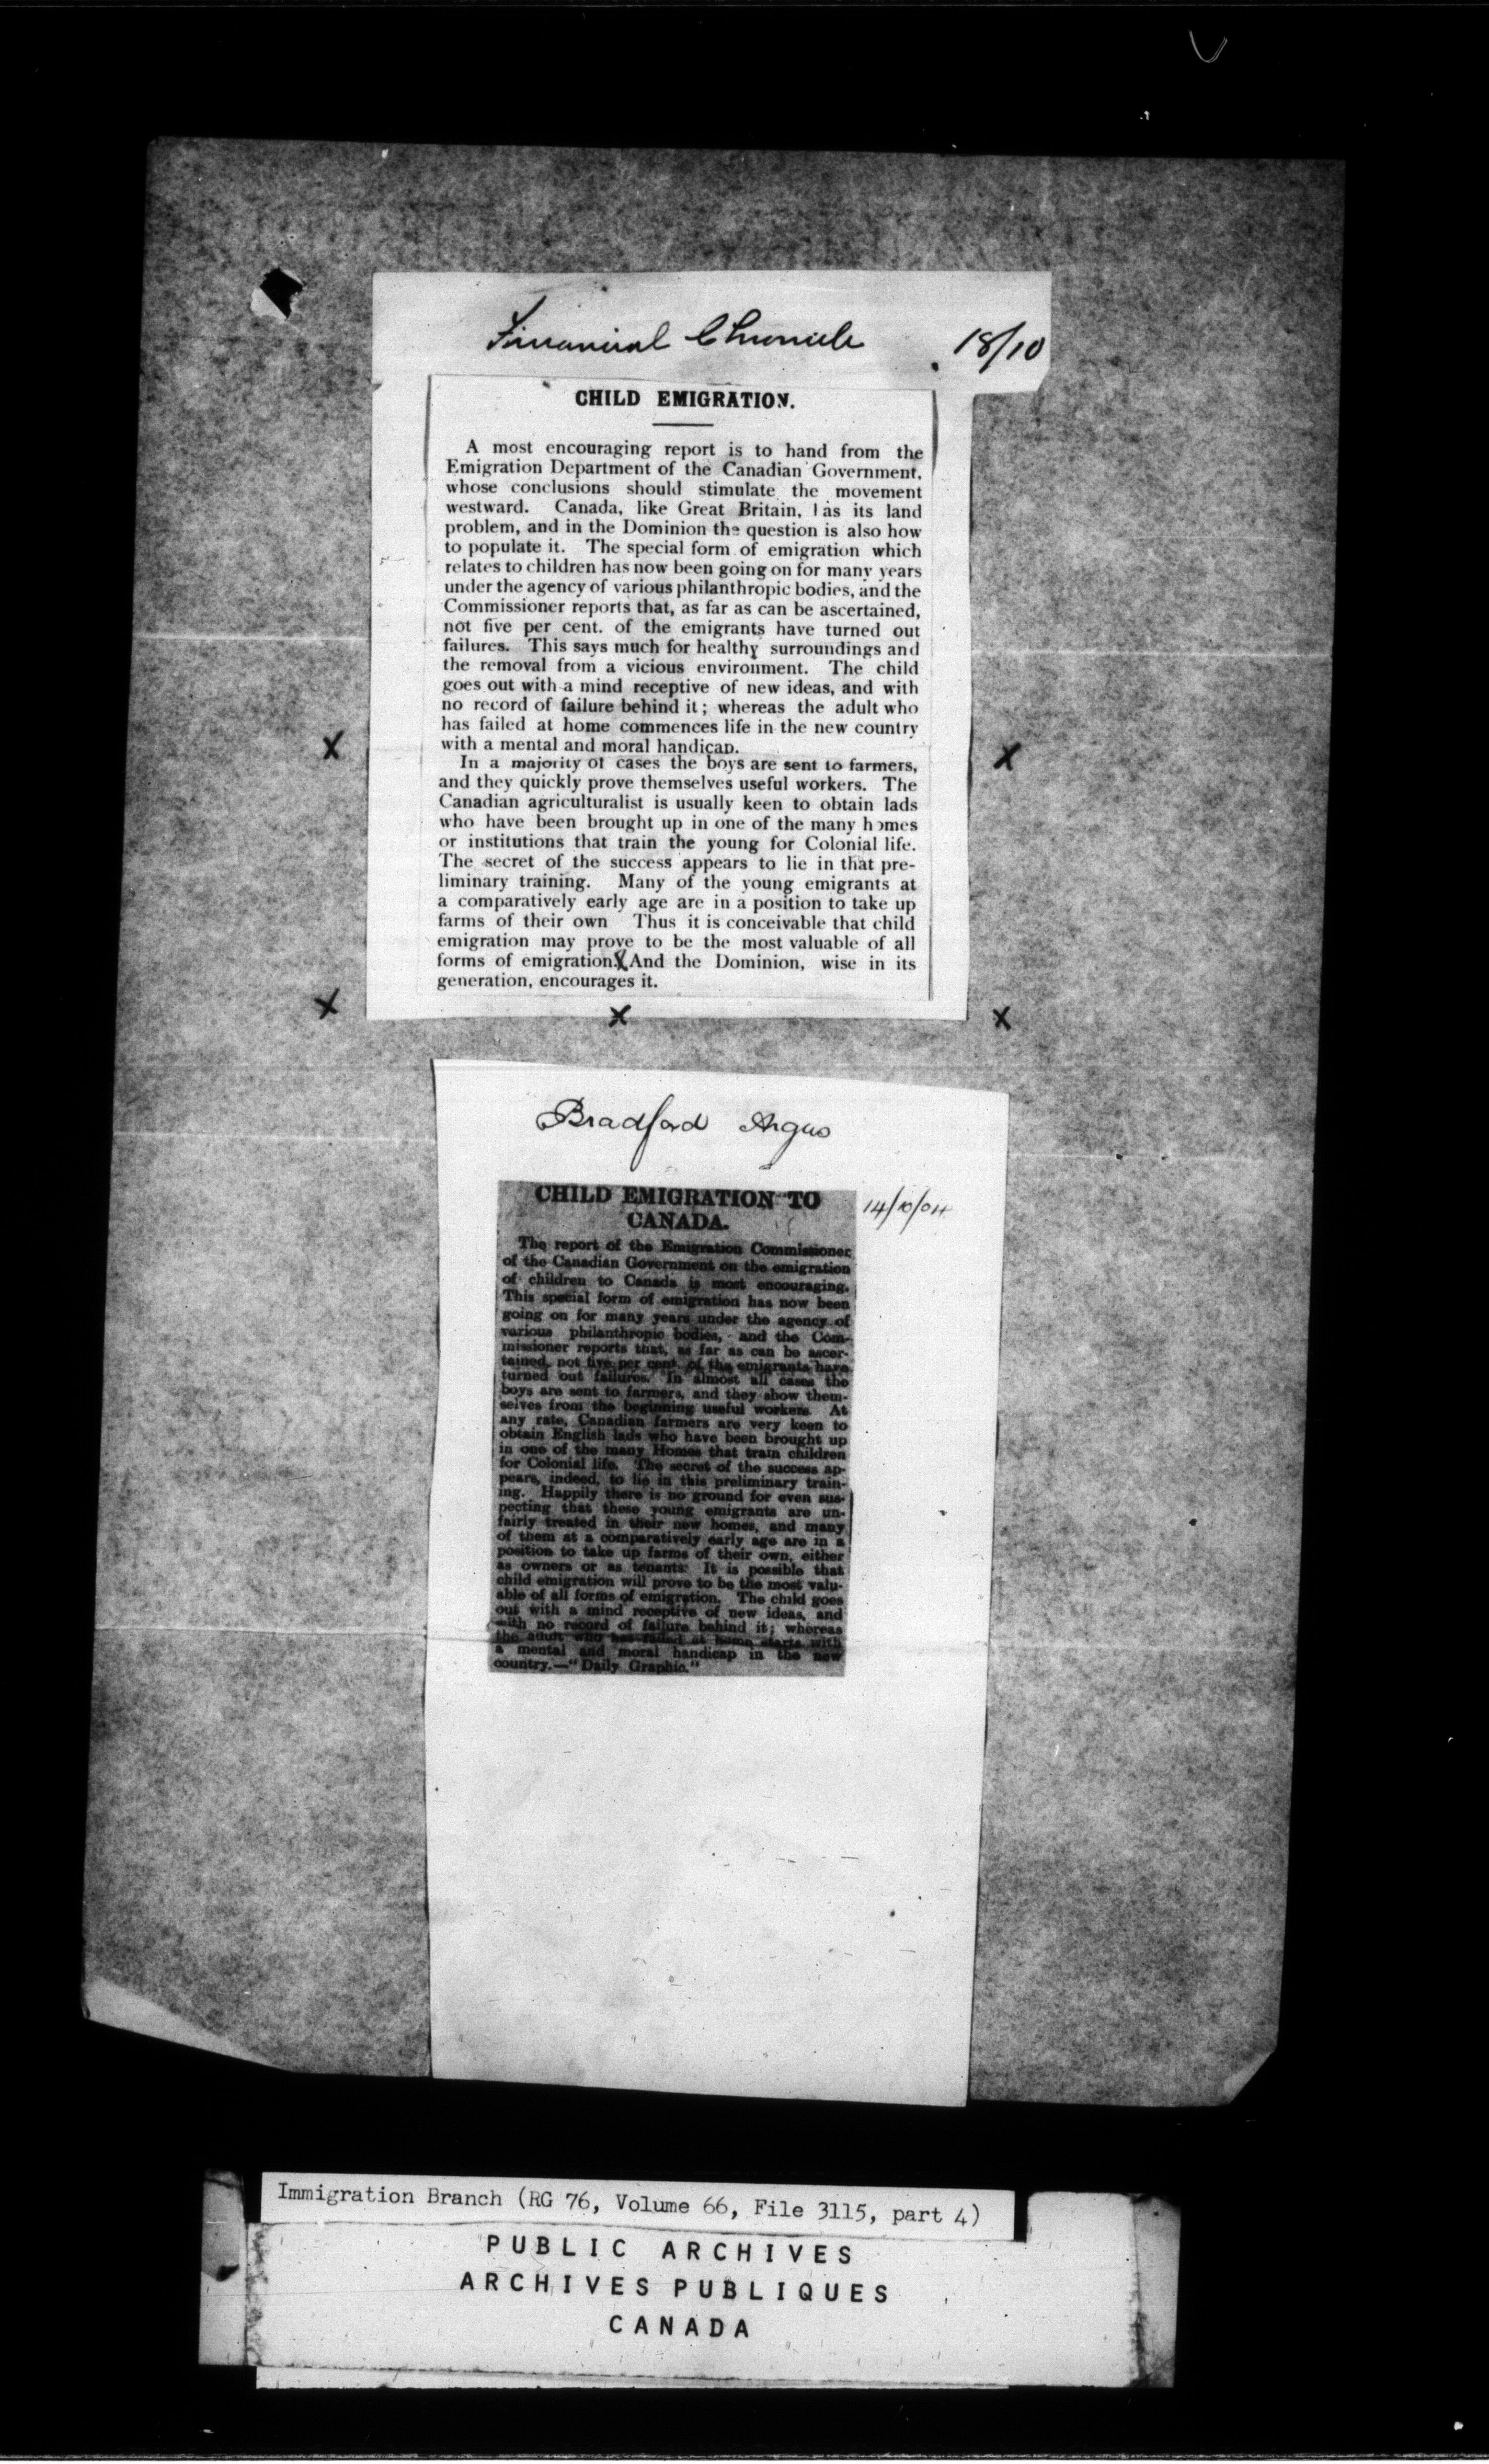 Financial Chronicle 18/10
CHILD EMIGRATION.
A most encouraging report is to hand from the
Emigration Department of the Canadian Government,
whose conclusions should stimulate the movement
westward. Canada, like Great Britain, has its land
problem, and in the Dominion the question is also how
to populate it. The special form of emigration which
relates to children has now been going on for many years
under the agency of various philanthropic bodies, and the
Commissioner reports that, as far as can be ascertained,
not five per cent. of the emigrants have turned out
failures. This says much for healthy surroundings and
the removal from a vicious environment. The child
goes out with a mind receptive of new ideas, and with
no record of failure behind it; whereas the adult who
has failed at home commences life in the new country
with a mental and moral handicap.
In a majority of cases the boys are sent to farmers,
and they quickly prove themselves useful workers. The
Canadian agriculturalist is usually keen to obtain lads
who have been brought up in one of the many homes
or institutions that train the young for Colonial life.
The secret of the success appears to lie in that pre-
liminary training. Many of the young emigrants at
a comparatively early age are in a position to take up
farms of their own Thus it is conceivable that child
emigration may prove to be the most valuable of all
forms of emigration. X And the Dominion, wise in its
generation, encourages it.
X X
X X X
Bradford Argus
14/10/04
CHILD EMIGRATION TO
CANADA.
The report of the Emigration Commissioner
of the Canadian Government on the emigration
of children to Canada is most encouraging.
This special form of emigration has now been
going on for many years under the agency of
various philanthropic bodies, and the Com-
missioner reports that, as far as can be ascer-
tained, not five per cent. of the emigrants have
turned out failures. In almost all cases the
boys are sent to farmers, and they show them-
selves from the beginning useful workers. At
any rate, Canadian farmers are very keen to
obtain English lads who have been brought up
in one of the many Homes that train children
for Colonial life. The secret of the success ap-
pears, indeed, to lie in this preliminary train-
ing. Happily there is no ground for even sus-
pecting that these young emigrants are un-
fairly treated in their new homes, and many
of them at a comparatively early age are in a
position to take up farms of their own, either
as owners or as tenants. It is possible that
child emigration will prove to be the most valu-
able of all forms of emigration. The child goes
out with a mind receptive of new ideas, and
with no record of failure behind it; whereas
the adult who has failed at home starts with
a mental and moral handicap in the new
country.—"Daily Graphic."
Immigration Branch (RG 76, Volume 66, File 3115, part 4)
PUBLIC ARCHIVES
ARCHIVES PUBLIQUES
CANADA